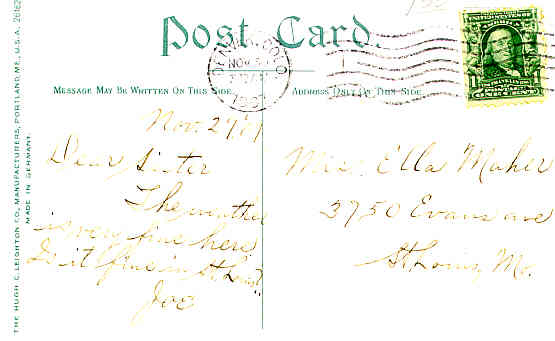 Post Card.
MESSAGE MAY BE WRITTEN ON THIS SIDE
ADDRESS ONLY ON THIS SIDE
THE HUGH C. LEIGHTON CO., MANUFACTURERS, PORTLAND, ME., U.S.A.
MADE IN GERMANY.
NOV 5
1907
Nov.
Dear Sister
The weather
is very fine here
Is it fine in St. Louis?
Joe
Miss. Ella Maher
3750 Evans ave
St. Louis, Mo.